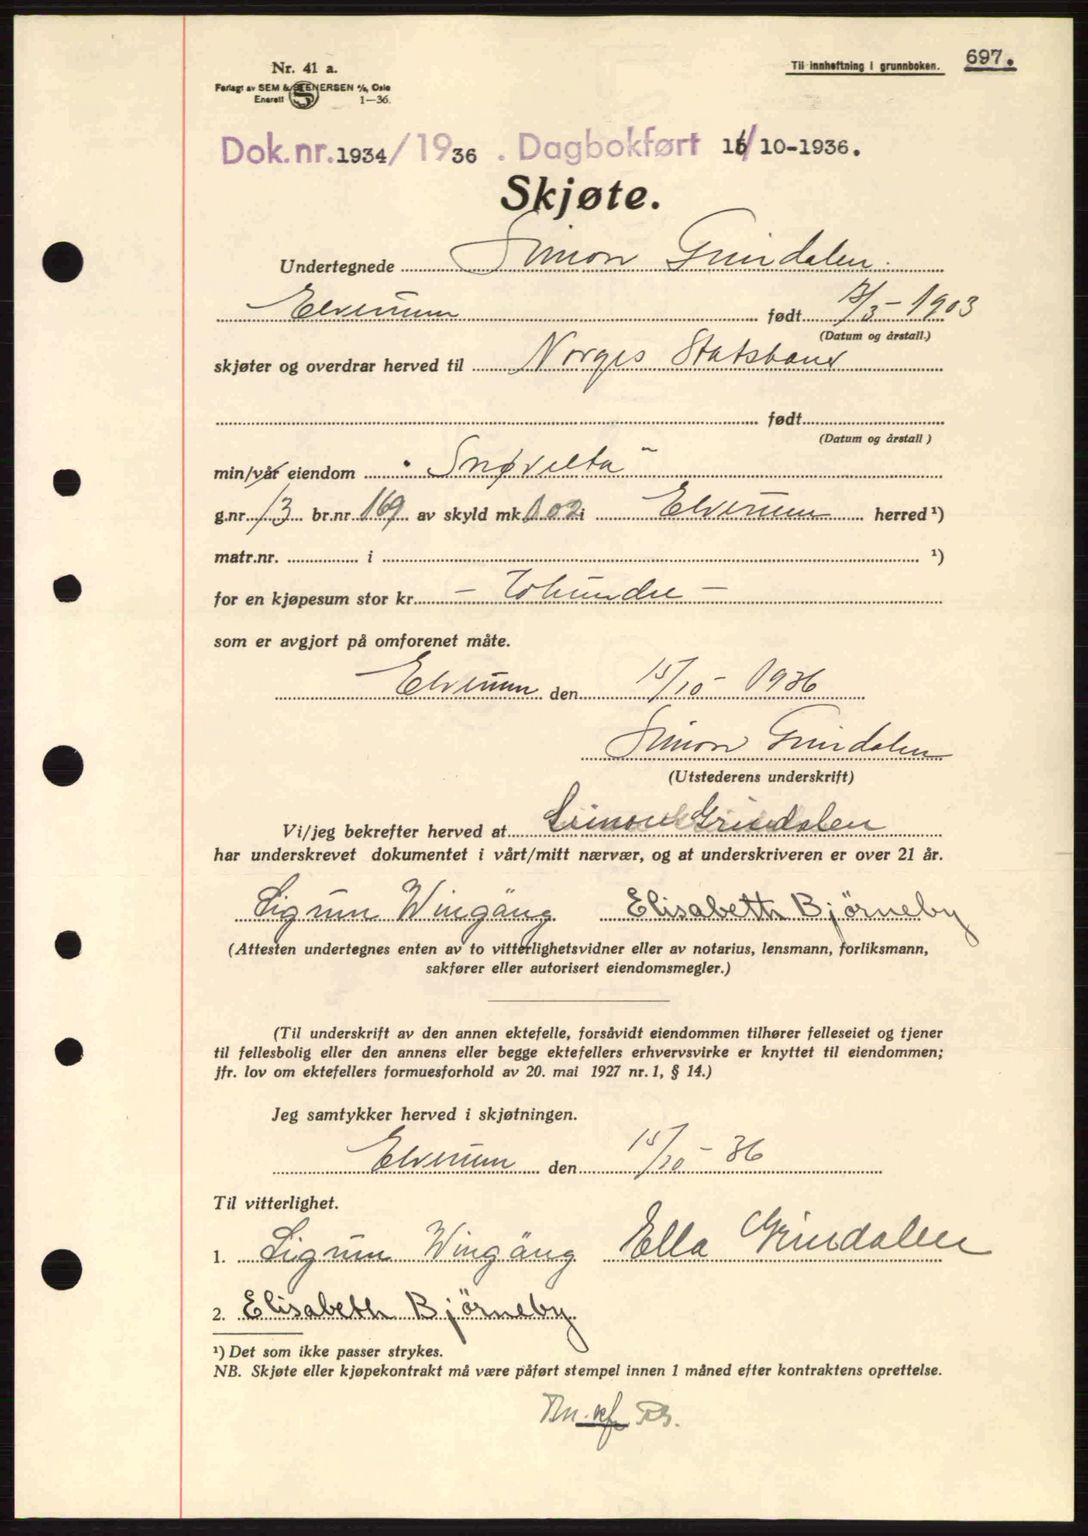 697.
Til innheftning i grunnboken.
Nr. 41 a.
Forlagt av SEM & STENERSEN A/S, Oslo
Enerett 1—36.
Dok.nr. 1934/1936. Dagbokført 16/10-1936.
Skjøte.
Undertegnede Simon Grindalen.
Elverum født /3-1903
(Datum og årstall.)
skjøter og overdrar herved til Norges Statsbaner
født
(Datum og årstall)
min/vår eiendom "Snøvelta"
g.nr. 13 br.nr. 169 av skyld mk. 0.02 i Elverum herred ¹)
matr.nr. i ¹)
for en kjøpesum stor kr. — Tohundre —
som er avgjort på omforenet måte.
Elverum den 15/10-1936
Simon Grindalen
(Utstederens underskrift)
Vi/jeg bekrefter herved at Simon Grindalen
har underskrevet dokumentet i vårt/mitt nærvær, og at underskriveren er over 21 år.
Sigrun Wingäng Elisabeth Bjørneby
(Attesten undertegnes enten av to vitterlighetsvidner eller av notarius, lensmann, forliksmann,
sakfører eller autorisert eiendomsmegler.)
(Til underskrift av den annen ektefelle, forsåvidt eiendommen tilhører felleseiet og tjener
til fellesbolig eller den annens eller begge ektefellers erhvervsvirke er knyttet til eiendommen;
jfr. lov om ektefellers formuesforhold av 20. mai 1927 nr. 1, § 14.)
Jeg samtykker herved i skjøtningen.
Elverum den 15/10-36
Til vitterlighet.
1. Sigrun Wingäng Ella Grindalen
2. Elisabeth Bjørneby
¹) Det som ikke passer strykes.
NB. Skjøte eller kjøpekontrakt må være påført stempel innen 1 måned efter kontraktens oprettelse.